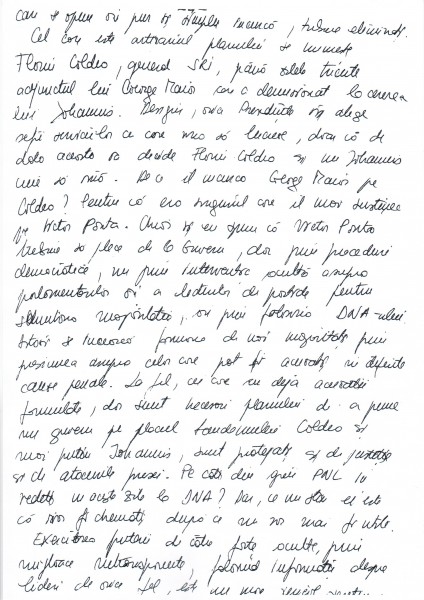 care se opun ori pur și simplu încurcă, trebuie eliminați.
Cel care este artizanul planului se numește
Florin Coldea, general SRI, până zilele trecute
adjunctul lui George Maior care a demisionat la cererea
lui Johannis. Desigur, orice Președinte își alege
șefii serviciilor cu care vrea să lucreze, doar că de
data aceasta va decide Florin Coldea și nu Johannis
cine să vină. De ce îl încurca George Maior pe
Coldea? Pentru că era singurul care îl mai susținea
pe Victor Ponta. Chiar și eu spun că Victor Ponta
trebuie să plece de la Guvern, dar prin proceduri
democratice, nu prin intervenție ocultă asupra
parlamentarilor și a liderilor de partide pentru
schimbarea majorității, ori prin folosirea DNA-ului
să se încerce formarea de noi majorități prin
presiunea asupra celor care pot fi acuzați în diferite
cauze penale. La fel, cei care au deja acuzații
formulate, dar sunt necesari planului de a pune
un guvern pe placul tandemului Coldea și
mai puțin Johannis, sunt protejați și de justiție
și de atacurile presei. Pe câți din greii PNL îi
vedeți în aceste zile la DNA? Dar, ce nu știu ei este
că vor fi chemați după ce nu vor mai fi utili.
Exercitarea puterii de către forțe oculte, prin
mijloace netransparente, folosind informații despre
lideri de orice fel, este un mare